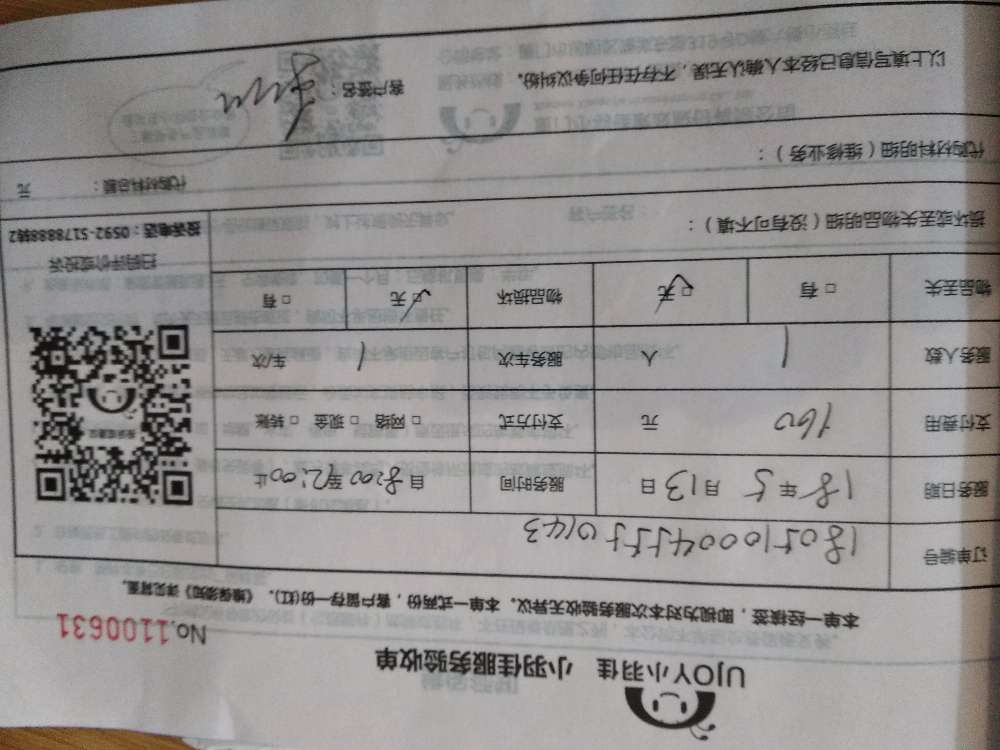 UJOY小羽佳 小羽佳服务验收单
No.1100631
本单一经接签，即视为对本次服务验收无异议。本单一式两份，客户留存一份(红)。《维保须知》详见背面。
订单编号
服务日期 18 年 5 月 13 日 服务时间 自 8:00 至 2:00 止
支付费用 160 元 支付方式 □ 网络 □ 现金 □ 转账
服务人数 1 人 服务车次 1 车/次
物品丢失 □ 有 □ 无 物品损坏 □ 无 □ 有
扫码评价或投诉
投诉电话：0592-5178888转2
损坏或丢失物品明细（没有可不填）：
代购材料明细（维修业务）：
代购材料总额： 元
以上填写信息已经本人确认无误，不存在任何争议纠纷。
客户签名：